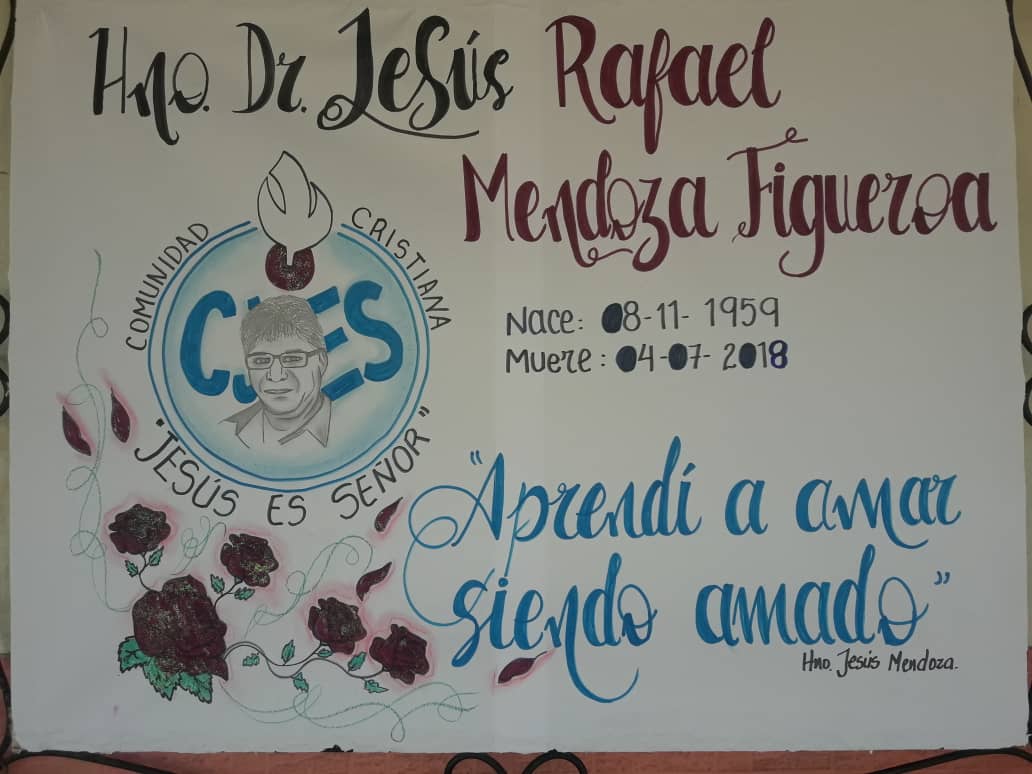 Hno. Dr. Jesús Rafael
Mendoza Figueroa
COMUNIDAD CRISTIANA
CJES
"JESÚS ES SEÑOR"
Nace: 08-11-1959
Muere: 04-07-2018
"Aprendí a amar
siendo amado"
Hno. Jesús Mendoza.